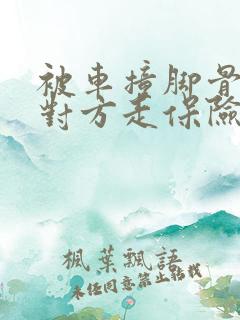 被車撞腳骨
對方走保險
楓葉飄語
未经同意禁止转载